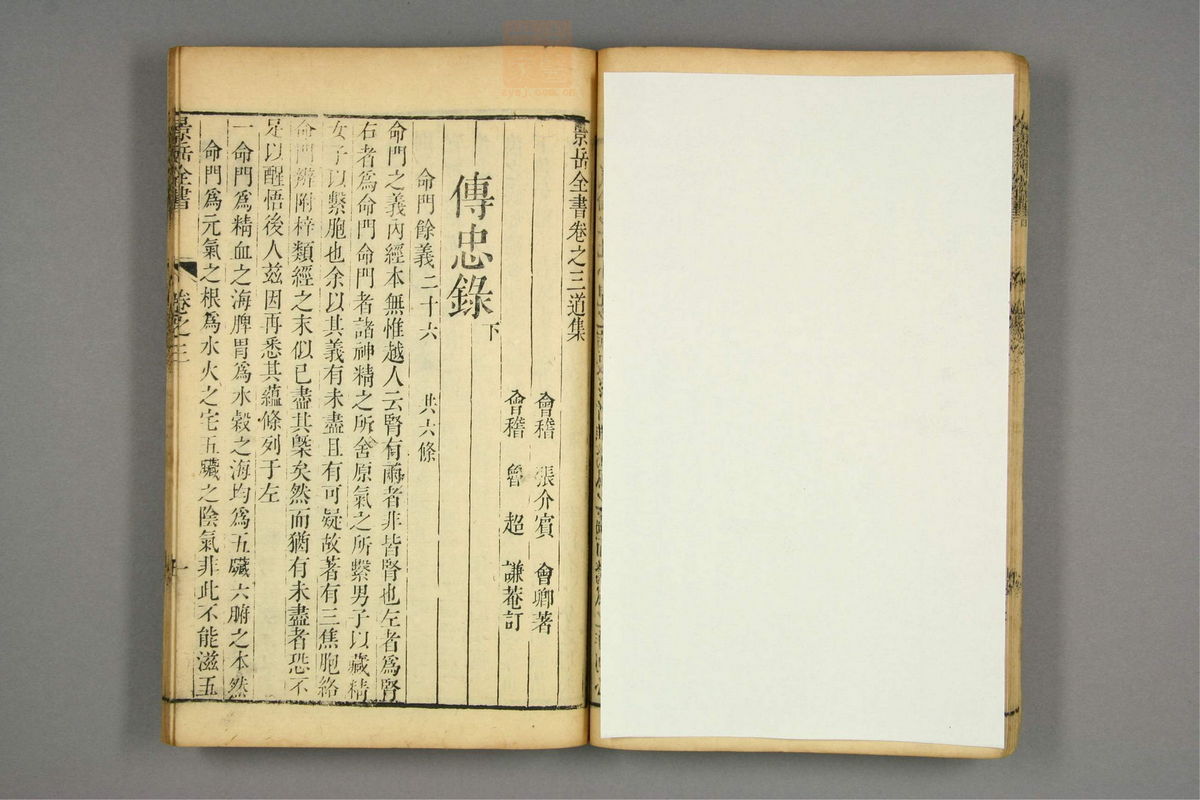 景岳全書卷之三道集
會稽 張介賓 會卿著
會稽 魯超 謙菴訂
傳忠錄 下
命門餘義 二十六 共六條
命門之義內經本無惟越人云腎有兩者非皆腎也左者為腎
右者為命門命門者諸神精之所舍原氣之所繫男子以藏精
女子以繫胞也余以其義有未盡且有可疑故著有三焦胞絡
命門辨附梓類經之末似已盡其槩矣然而猶有未盡者恐不
足以醒悟後人茲因再悉其蘊條列于左
一命門為精血之海脾胃為水穀之海均為五臟六腑之本然
命門為元氣之根為水火之宅五臟之陰氣非此不能滋五
景岳全書 卷之三 一